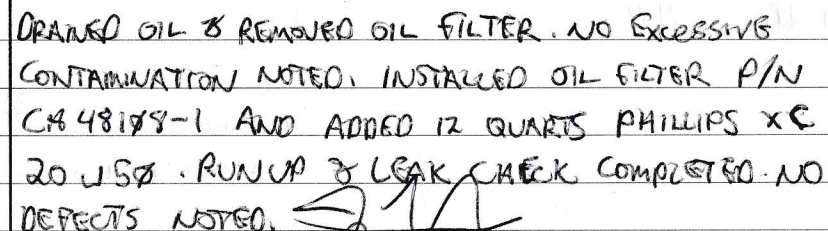 DRAINED OIL & REMOVED OIL FILTER. NO EXCESSIVE
CONTAMINATION NOTED. INSTALLED OIL FILTER P/N
CA48108-1 AND ADDED 12 QUARTS PHILLIPS XC
20W50. RUNUP & LEAK CHECK COMPLETED. NO
DEFECTS NOTED.